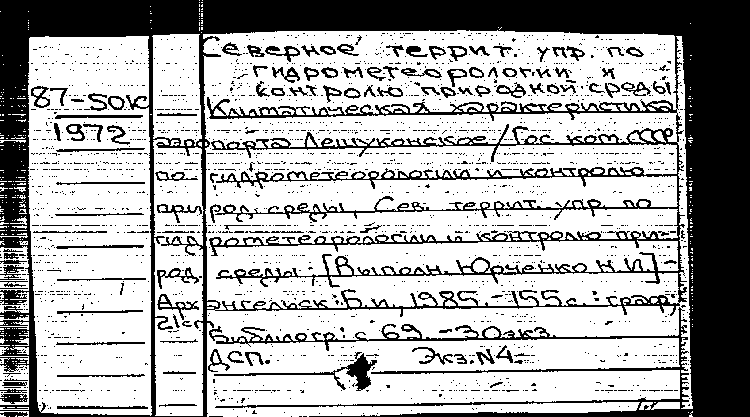 Северное террит. упр. по
гидрометеорологии и
контролю природной среды
87-50К
1972
Климатическая характеристика
аэропорта Лешуконское / Гос. ком. СССР
по гидрометеорологии и контролю
природ. среды, Сев. террит. упр. по
гидрометеорологии и контролю при-
род. среды; [Выполн. Юрченко Н.И.] -
Архангельск: Б.и., 1985. - 155 с. : граф;
21 см.
Библиогр: с 69. - 30 экз.
ДСП. Экз. N4.